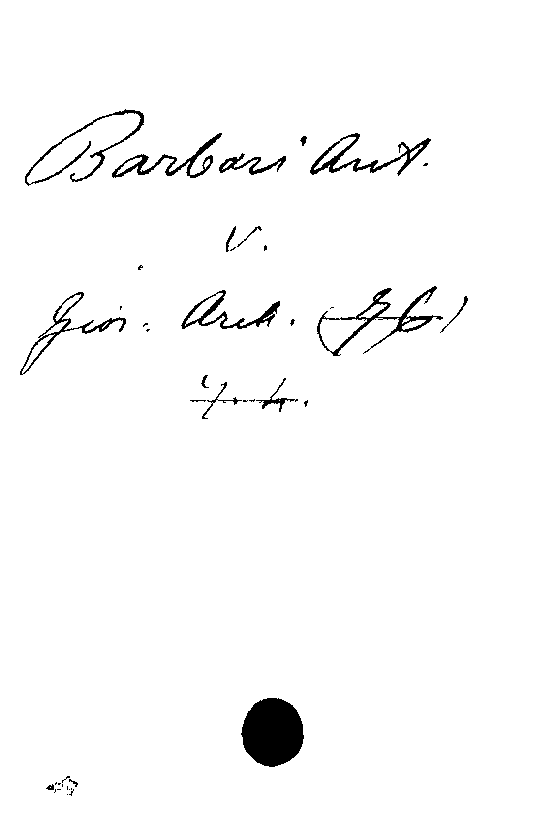 Barbari Ant.
v.
Gior. Arch. (G G)